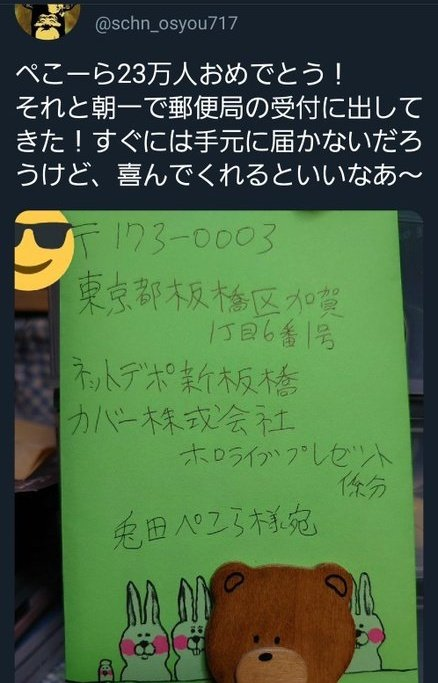 @schn_osyou717
ぺこーら23万人おめでとう！
それと朝一で郵便局の受付に出して
きた！すぐには手元に届かないだろ
うけど、喜んでくれるといいなあ～
〒173-0003
東京都板橋区加賀
1丁目6番1号
ネットデポ新板橋
カバー株式会社
ホロライブプレゼント
係分
兎田ぺこら様宛